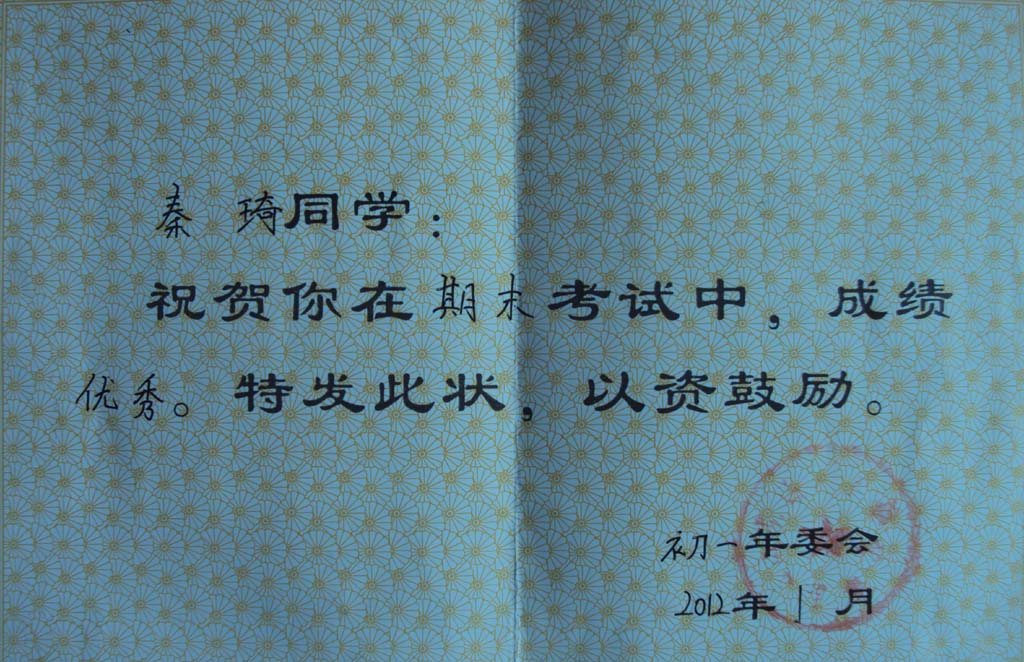 秦 琦同学：
祝贺你在期末考试中，成绩
优秀。特发此状，以资鼓励。
初一年委会
2012年1月